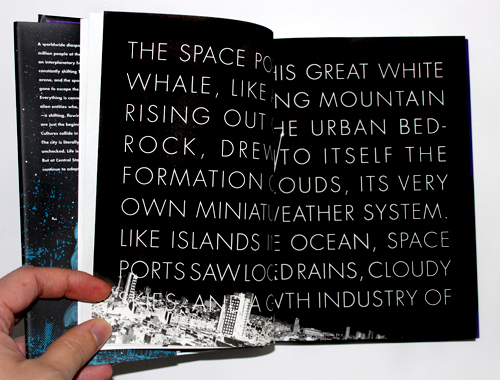 A worldwide
million people at the
an interplanetary
constantly shifting
arena, and the
gone to escape the
Everything is
alien entities
—a shifting,
are just the
Cultures collide in
The city is literally
unchecked. Life is
But at Central
continue to
THE SPACE PO HIS GREAT WHITE
WHALE, LIKE NG MOUNTAIN
RISING OUT HE URBAN BED-
ROCK, DREW TO ITSELF THE
FORMATION OUDS, ITS VERY
OWN MINIATU WEATHER SYSTEM.
LIKE ISLANDS I E OCEAN, SPACE
PORTS SAW LOC ED RAINS, CLOUDY
SKIES, AND A G WTH INDUSTRY OF